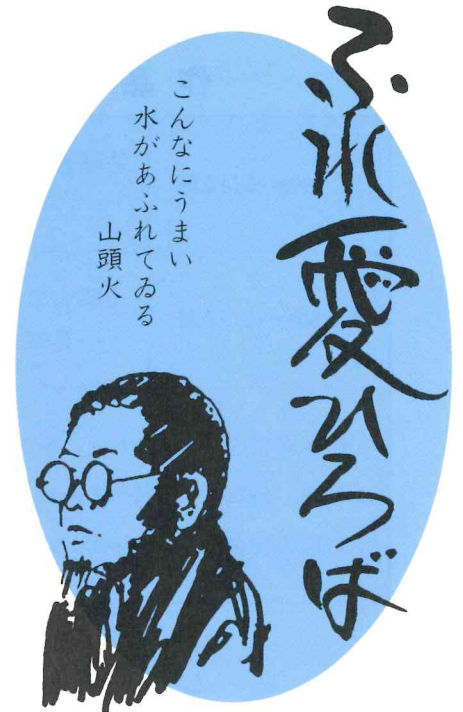 ふれ愛ひろば
こんなにうまい
水があふれてゐる
山頭火